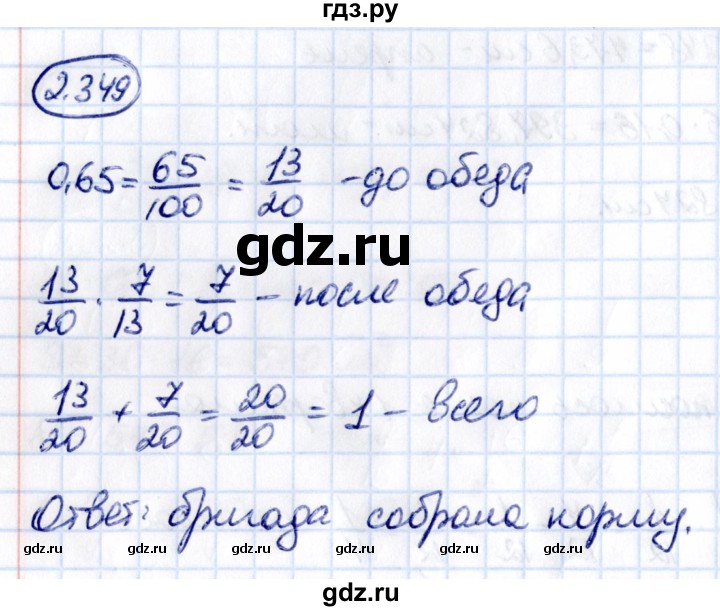 гдз.ру
2.349
0,65 = 65/100 = 13/20 - до обеда
gdz.ru
13/20 · 7/13 = 7/20 - после обеда
13/20 + 7/20 = 20/20 = 1 - всего
Ответ: бригада собрала норму.
gdz.ru gdz.ru gdz.ru gdz.ru gdz.ru
gdz.ru